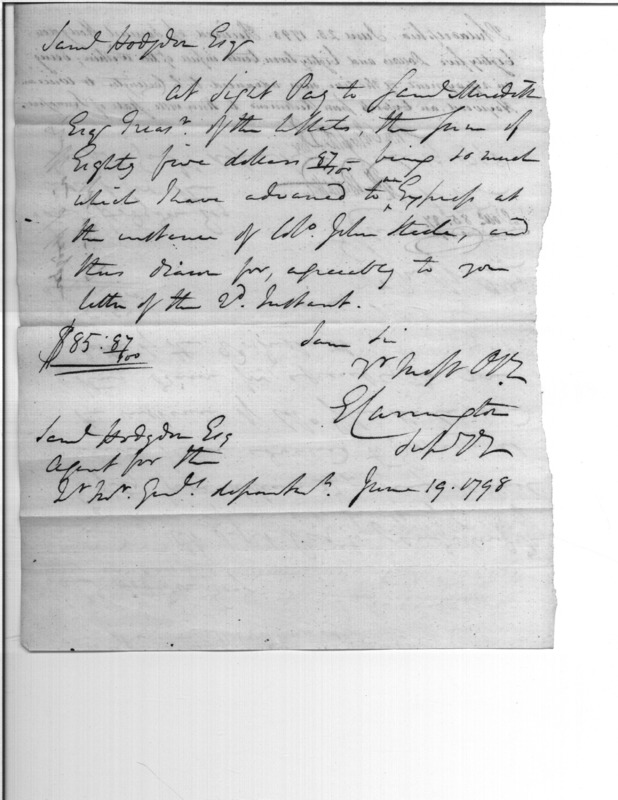 Saml Hodgdon Esqr
at Sight Pay to Saml Meredith
Esqr Treasr. of the UStates, the sum of
Eighty five dollars 87/100 being so much
which I have advanced to an Express at
the instance of Colo. John Steele, and
thus drawn for, agreeably to your
letter of the 2d. Instant.
$85:87/100
I am Sir
Yr Most Ob
ECarrington
Saml Hodgdon Esq
Agent for the
Qr Mr. Genls. departmt. June 19. 1798